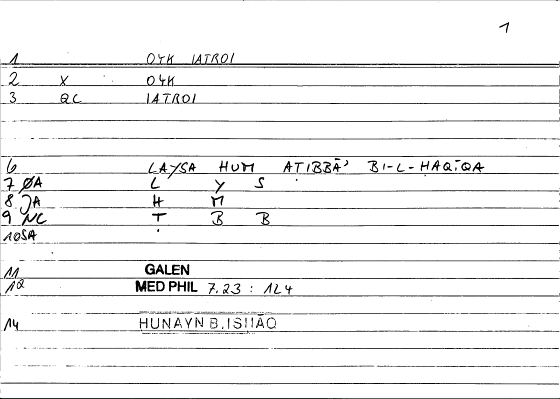 1
1 OYK IATROI
2 X OYK
3 QC IATROI
6 LAYSA HUM ATIBBĀʾ BI-L-HAQĪQA
7 ØA L Y S
8 JA H M
9 NC T B B
10 SA
11 GALEN
12 MED PHIL 7.23 : 1L4
14 HUNAYN B. ISHĀQ